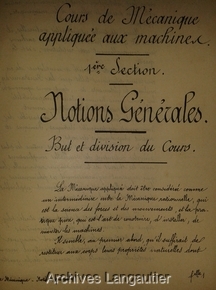 Cours de Mécanique
appliquée aux machines.
1ère Section.
Notions Générales.
But et division du Cours.
La Mécanique appliquée doit être considérée comme
un intermédiaire entre la Mécanique rationnelle, qui
est la science des forces et des mouvements et la pra-
tique pure, qui est l'art de construire, d'installer, de
conduire les machines.
Il semble, au premier abord, qu'il suffirait de
restituer aux corps leurs propriétés naturelles dont
Archives Langautier